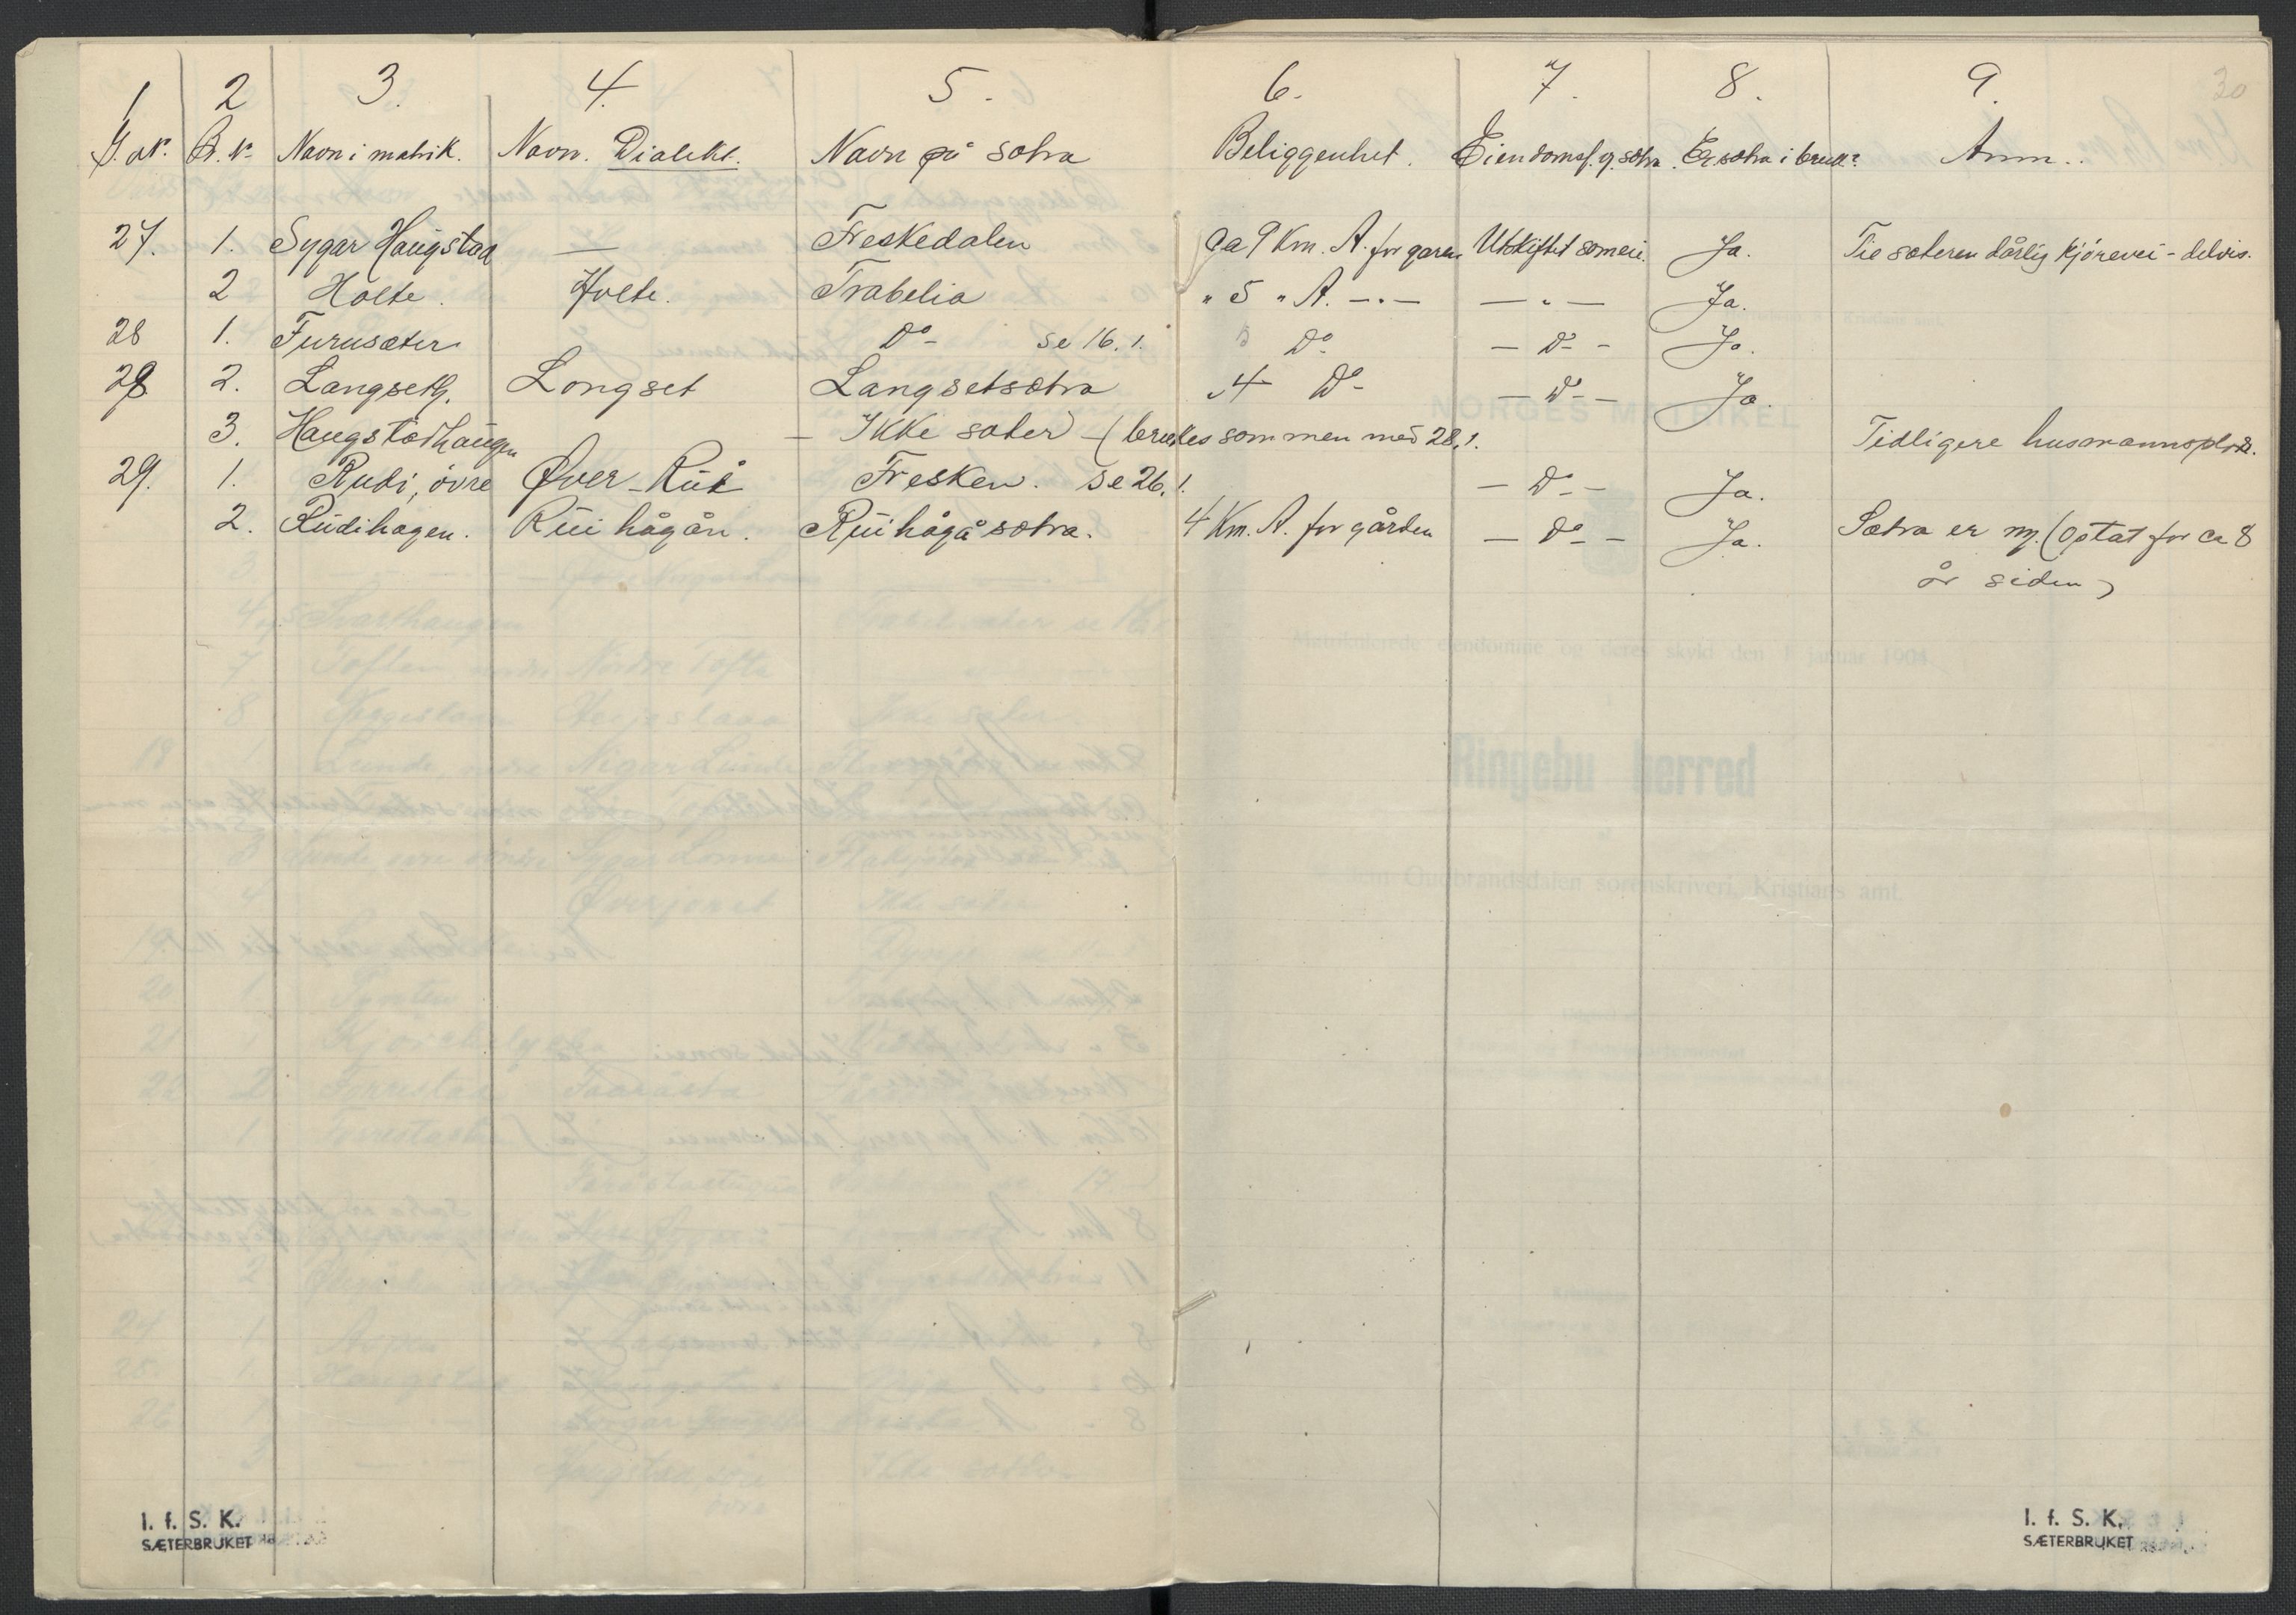 1 2 3. 4. 5. 6. 7. 8. 9. 30
G. nr. B. nr. Navn i matrik. Navn. Dialekt. Navn på sætra Beliggenhet. Eiendomsf. og sætra. Er sætra i bruk? Anm..
27. 1. Sygar Haugstad — Freskedalen Ca 9 Km. A. for garen Utskiftet someie. Ja. Til sæteren dårlig kjörevei - delvis.
2 Holte. Hølte. Trabelia " 5 " A. — " — — " — Ja.
28 1. Furusæter Do - se 16. 1. Do - Do - Ja.
28 2. Langseth. Longset Langsetsætra 4 Do - — Do - — Ja.
3. Haugstadhaugen — Ikke sæter — (brukes sammen med 28,1. Tidligere husmannsplass.
29. 1. Rudi, övre Øver - Rui Fresken. se 26, 1. — Do - — Ja.
2. Rudihagen. Rui hågån. Rui hågåsætra. 4 Km. A. for gården — Do - — Ja. Sætra er ny. (optat for ca 8
år siden)
I. f. S. K.
SÆTERBRUKET
I. f. S. K.
SÆTERBRUKET